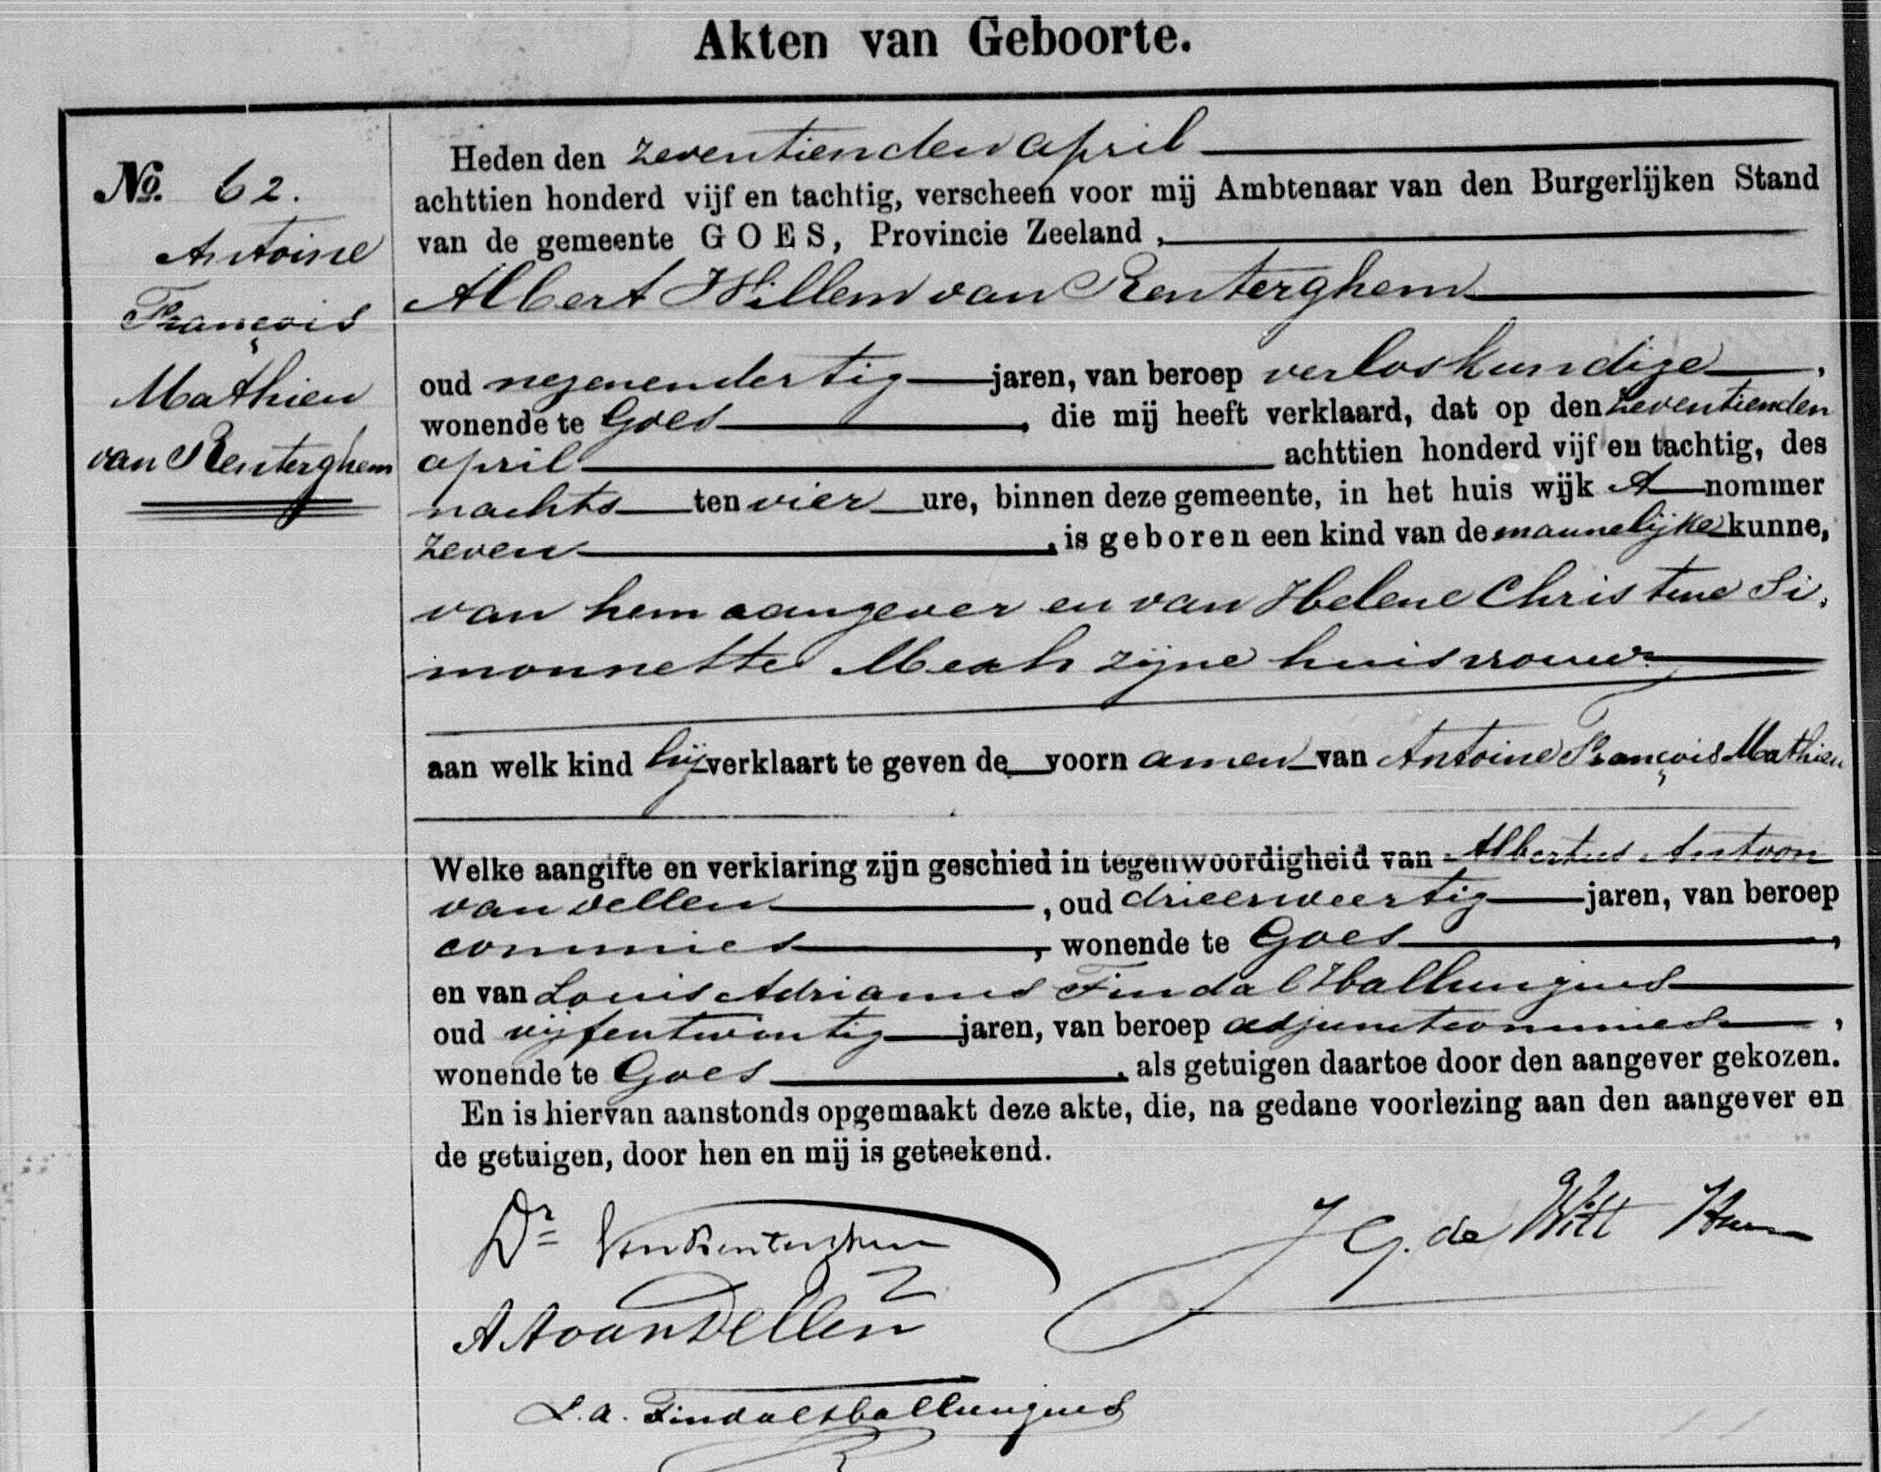 Akten van Geboorte.
No. 62.
Antoine
François
Mathieu
van Renterghem
Heden den zeventienden april
achttien honderd vijf en tachtig, verscheen voor mij Ambtenaar van den Burgerlijken Stand
van de gemeente GOES, Provincie Zeeland,
Albert Willem van Renterghem
oud negenendertig jaren, van beroep verloskundige,
wonende te Goes, die mij heeft verklaard, dat op den zeventienden
april achttien honderd vijf en tachtig, des
nachts ten vier ure, binnen deze gemeente, in het huis wijk A nommer
zeven, is geboren een kind van de mannelijke kunne,
van hem aangever en van Helene Christine Si,
monnette zijne huisvrouw
aan welk kind hij verklaart te geven de voornamen van Antoine François Mathieu
Welke aangifte en verklaring zijn geschied in tegenwoordigheid van Albertus Antoon
van Dellen, oud drieenveertig jaren, van beroep
commies, wonende te Goes,
en van Louis Adrianus Tindal
oud vijfentwintig jaren, van beroep adjunctcommies,
wonende te Goes, als getuigen daartoe door den aangever gekozen.
En is hiervan aanstonds opgemaakt deze akte, die, na gedane voorlezing aan den aangever en
de getuigen, door hen en mij is geteekend.
Dr VanRenterghem
J G. de Witt
A A van Dellen
L. A.